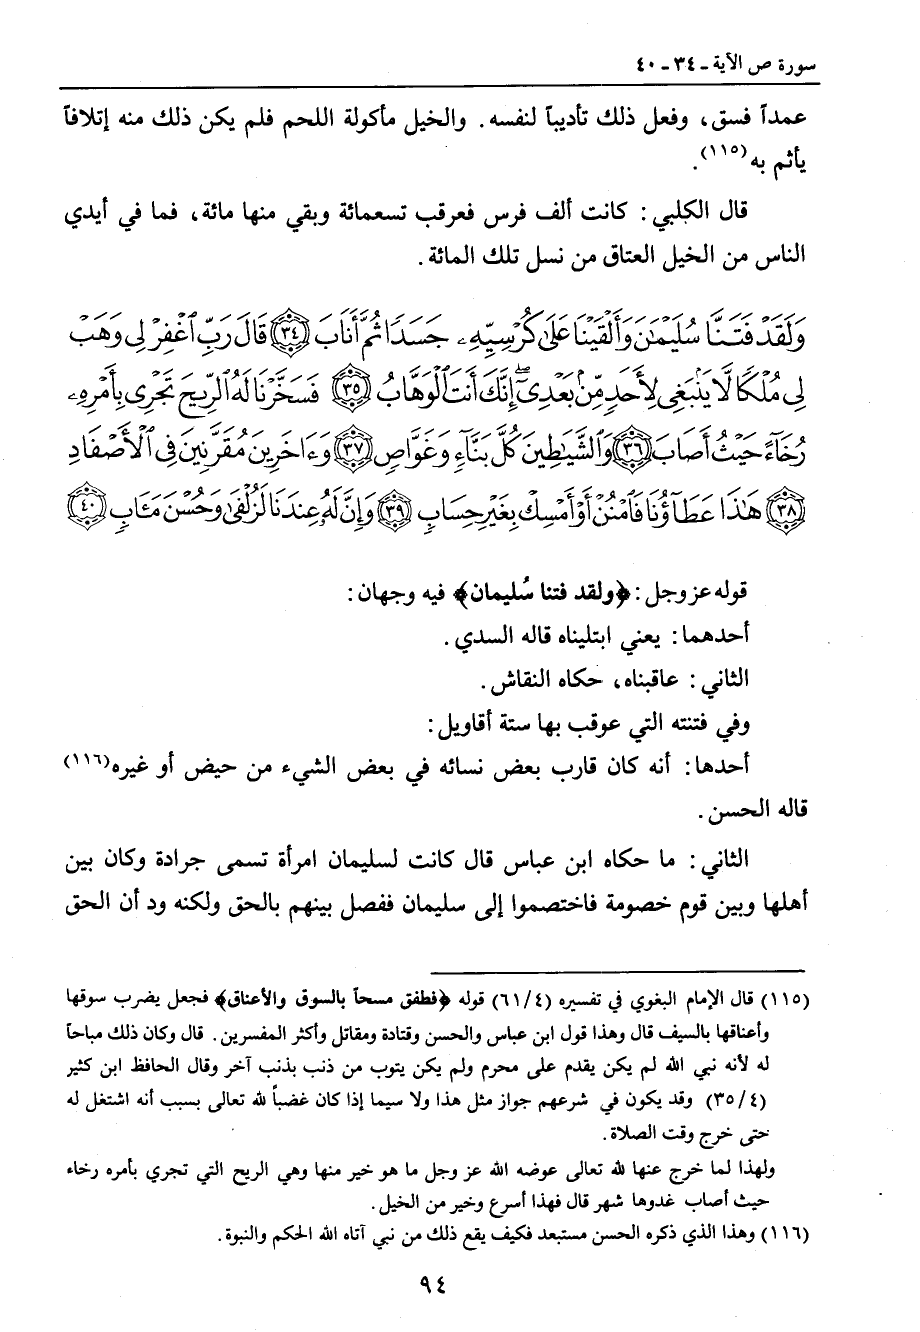 سورة ص الآية ـ ٣٤ ـ ٤٠
عمداً فسق، وفعل ذلك تأديباً لنفسه. والخيل مأكولة اللحم فلم يكن ذلك منه إتلافاً
يأثم به(١١٥).
قال الكلبي: كانت ألف فرس فعرقب تسعمائة وبقي منها مائة، فما في أيدي
الناس من الخيل العتاق من نسل تلك المائة.
وَلَقَدْ فَتَنَّا سُلَيْمَٰنَ وَأَلْقَيْنَا عَلَىٰ كُرْسِيِّهِۦ جَسَدًا ثُمَّ أَنَابَ ٣٤ قَالَ رَبِّ ٱغْفِرْ لِى وَهَبْ
لِى مُلْكًا لَّا يَنۢبَغِى لِأَحَدٍ مِّنۢ بَعْدِىٓ ۖ إِنَّكَ أَنتَ ٱلْوَهَّابُ ٣٥ فَسَخَّرْنَا لَهُ ٱلرِّيحَ تَجْرِى بِأَمْرِهِۦ
رُخَآءً حَيْثُ أَصَابَ ٣٦ وَٱلشَّيَٰطِينَ كُلَّ بَنَّآءٍ وَغَوَّاصٍ ٣٧ وَءَاخَرِينَ مُقَرَّنِينَ فِى ٱلْأَصْفَادِ
٣٨ هَٰذَا عَطَآؤُنَا فَٱمْنُنْ أَوْ أَمْسِكْ بِغَيْرِ حِسَابٍ ٣٩ وَإِنَّ لَهُۥ عِندَنَا لَزُلْفَىٰ وَحُسْنَ مَـَٔابٍ ٤٠
قوله عز وجل: ﴿ولقد فتنا سُليمان﴾ فيه وجهان:
أحدهما: يعني ابتليناه قاله السدي.
الثاني: عاقبناه، حكاه النقاش.
وفي فتنته التي عوقب بها ستة أقاويل:
أحدها: أنه كان قارب بعض نسائه في بعض الشيء من حيض أو غيره(١١٦)
قاله الحسن.
الثاني: ما حكاه ابن عباس قال كانت لسليمان امرأة تسمى جرادة وكان بين
أهلها وبين قوم خصومة فاختصموا إلى سليمان ففصل بينهم بالحق ولكنه ود أن الحق
(١١٥) قال الإمام البغوي في تفسيره (٦١/٤) قوله ﴿فطفق مسحاً بالسوق والأعناق﴾ فجعل يضرب سوقها
وأعناقها بالسيف قال وهذا قول ابن عباس والحسن وقتادة ومقاتل وأكثر المفسرين. قال وكان ذلك مباحاً
له لأنه نبي الله لم يكن يقدم على محرم ولم يكن يتوب من ذنب بذنب آخر وقال الحافظ ابن كثير
(٣٥/٤) وقد يكون في شرعهم جواز مثل هذا ولا سيما إذا كان غضباً لله تعالى بسبب أنه اشتغل له
حتى خرج وقت الصلاة.
ولهذا لما خرج عنها لله تعالى عوضه الله عز وجل ما هو خير منها وهي الريح التي تجري بأمره رخاء
حيث أصاب غدوها شهر قال فهذا أسرع وخير من الخيل.
(١١٦) وهذا الذي ذكره الحسن مستبعد فكيف يقع ذلك من نبي آتاه الله الحكم والنبوة.
٩٤